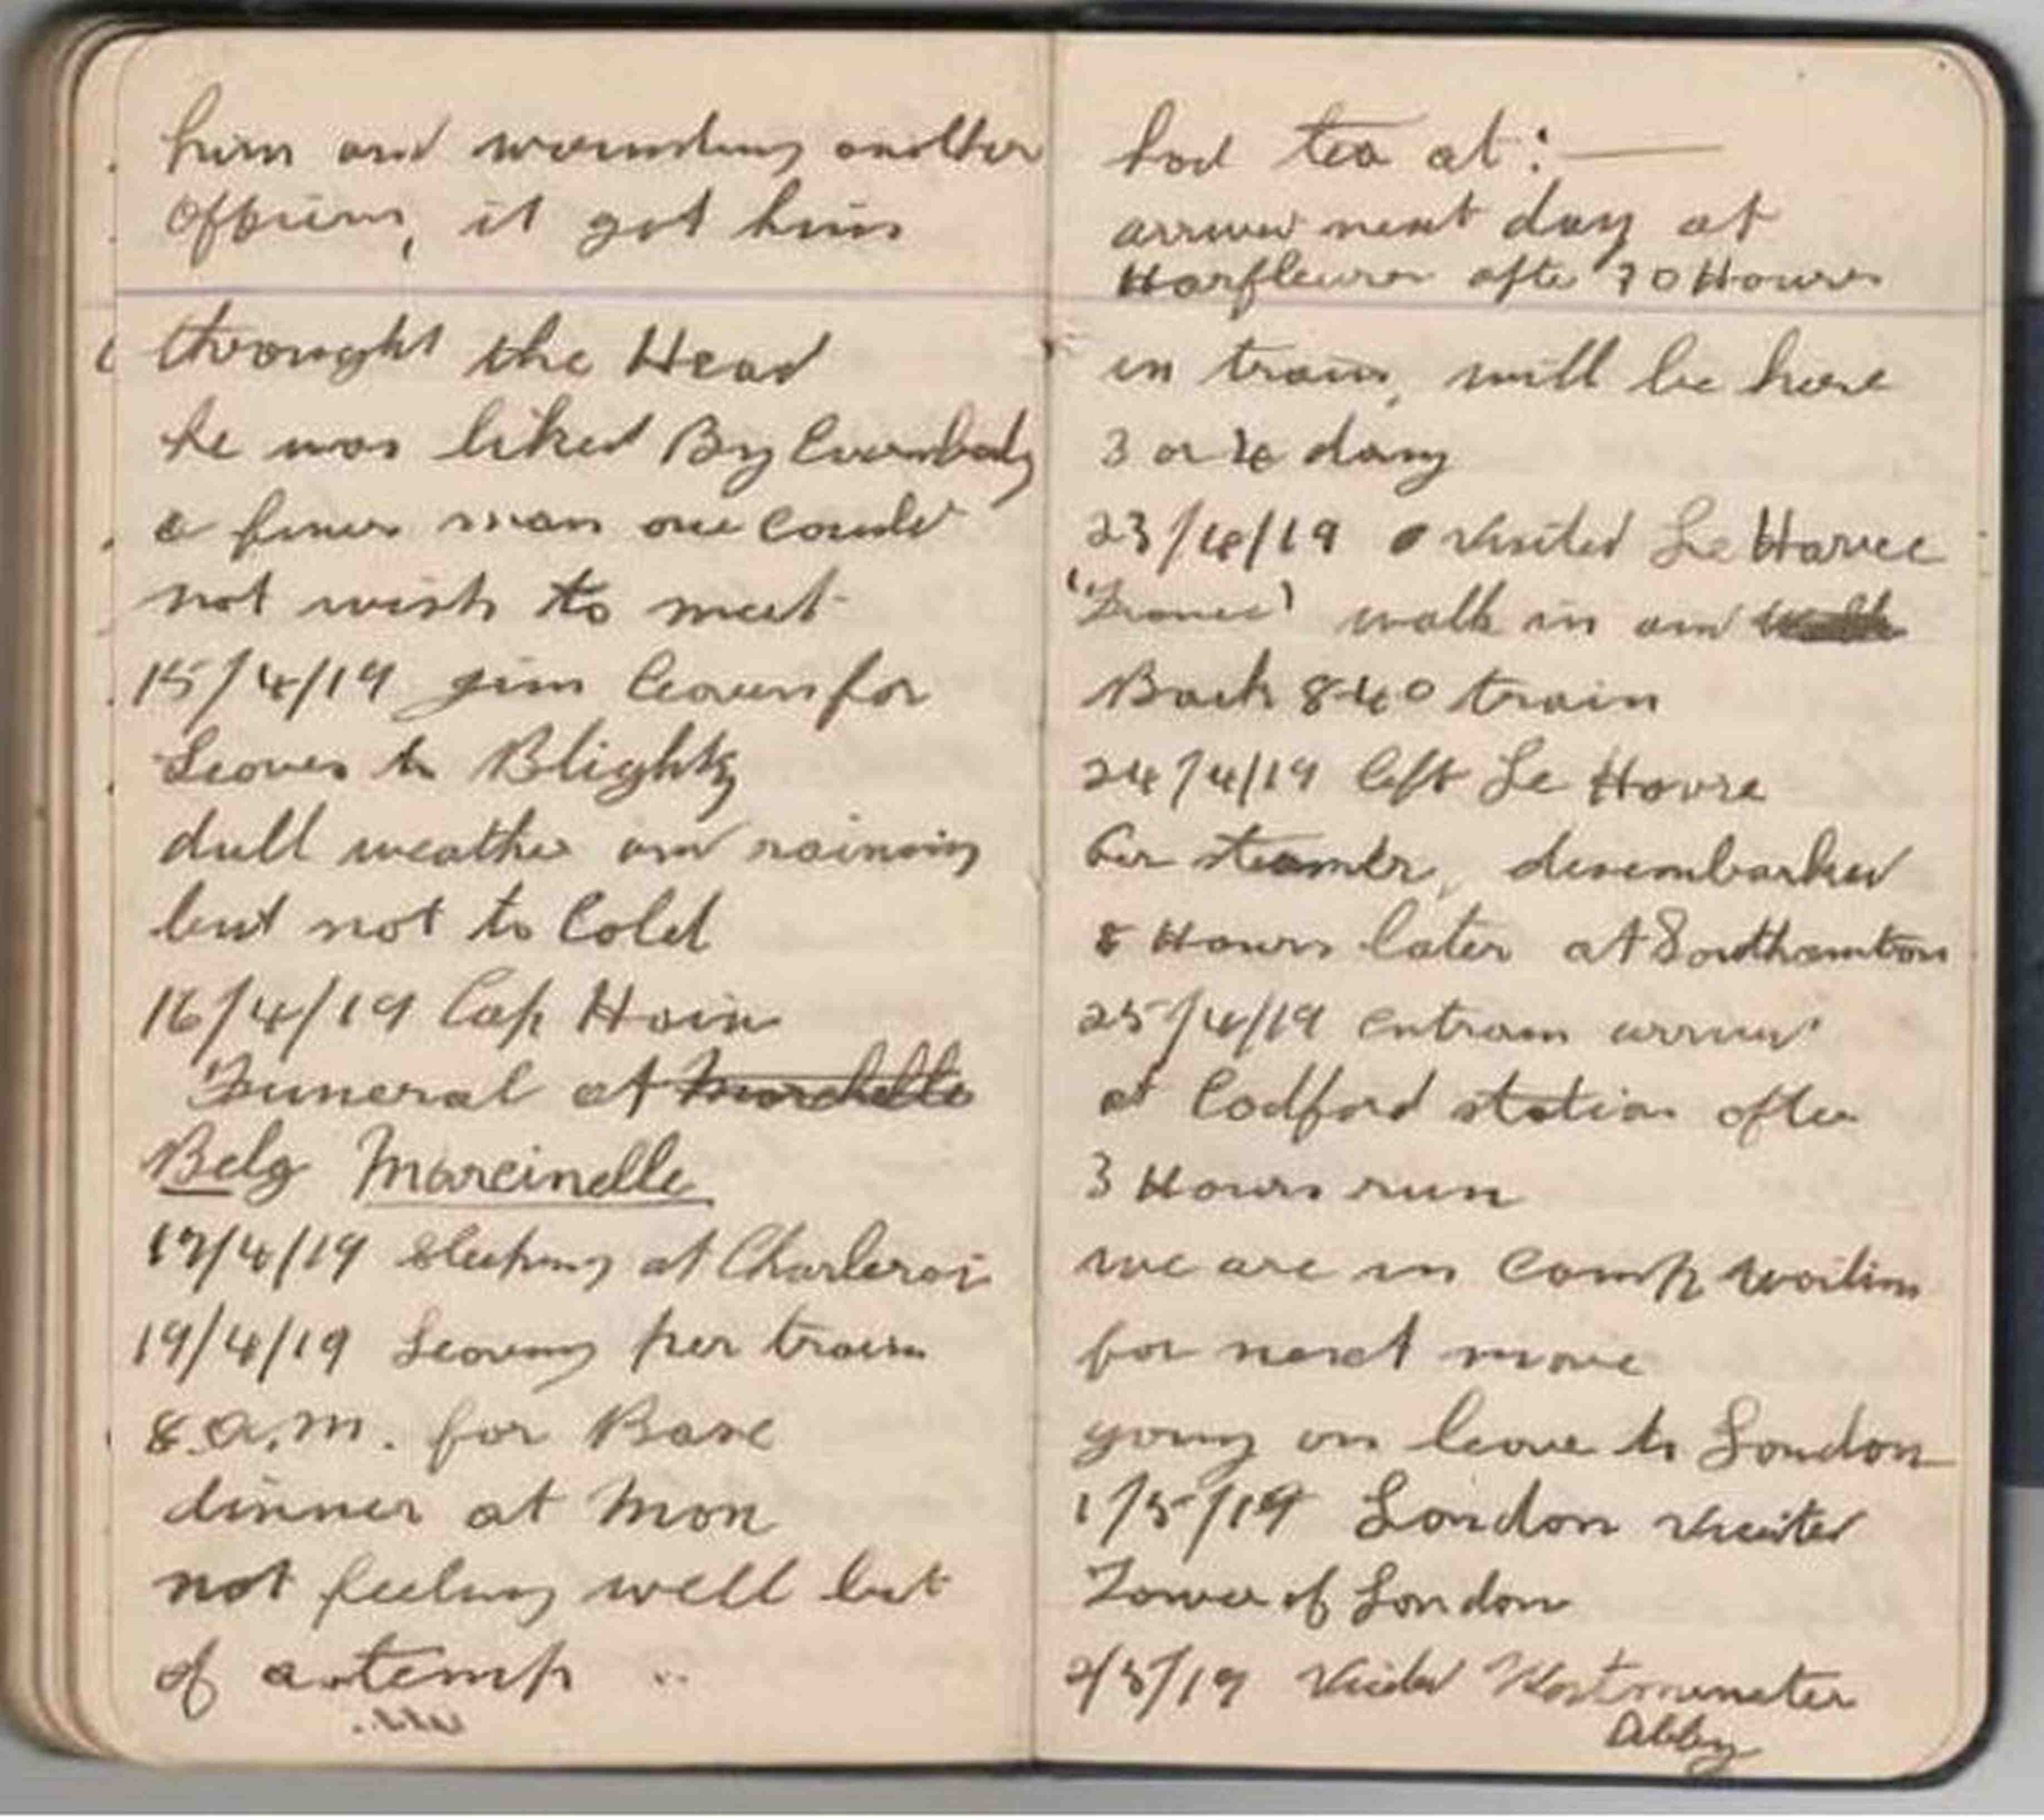 him and wounding another
Officers, it got him
throught the Head
he was liked By Everybody
a finer man one could
not wish to meet
15/4/19 Jim leaves for
Leaves to Blighty
dull weather and raining
but not to Cold
16/4/19 Cap Hain
Funeral at
Belg Marcinelle
17/4/19 sleeping at Charleroi
19/4/19 Leaving per train
8.a.m. for Base
dinner at Mon
not feeling well bit
of a temp
had tea at :—
arrived next day at
Harfleur after 70 Hours
in train, will be here
3 or 4 days
23/4/19 visited Le Havre
'France' walk in and
Back 840 train
24/4/19 left Le Havre
Per steamer, disembarked
8 Hours later at Southamton
25/4/19 entrain arrived
at Codford station after
3 Hours run
we are in camp waiting
for next move
going on leave to London
1/5/19 London visited
Tower of London
2/5/19 Visited Westminster
Abbey